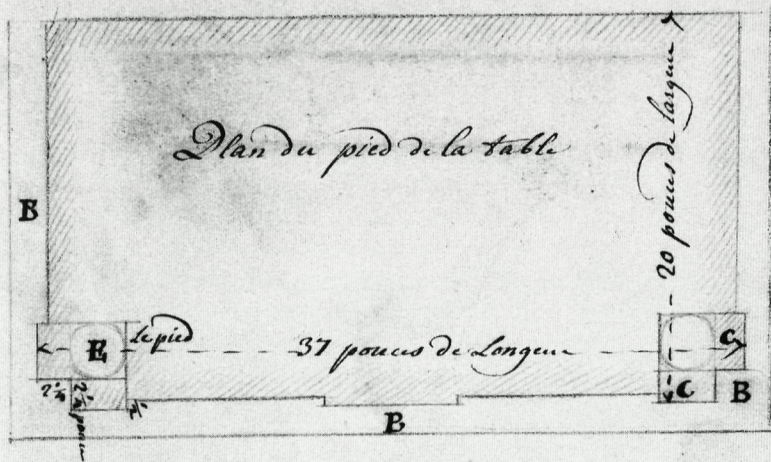 Plan du pied de la table
20 pouces de largeur
B
E
le pied
37 pouces de Longeur
C
C
B
B